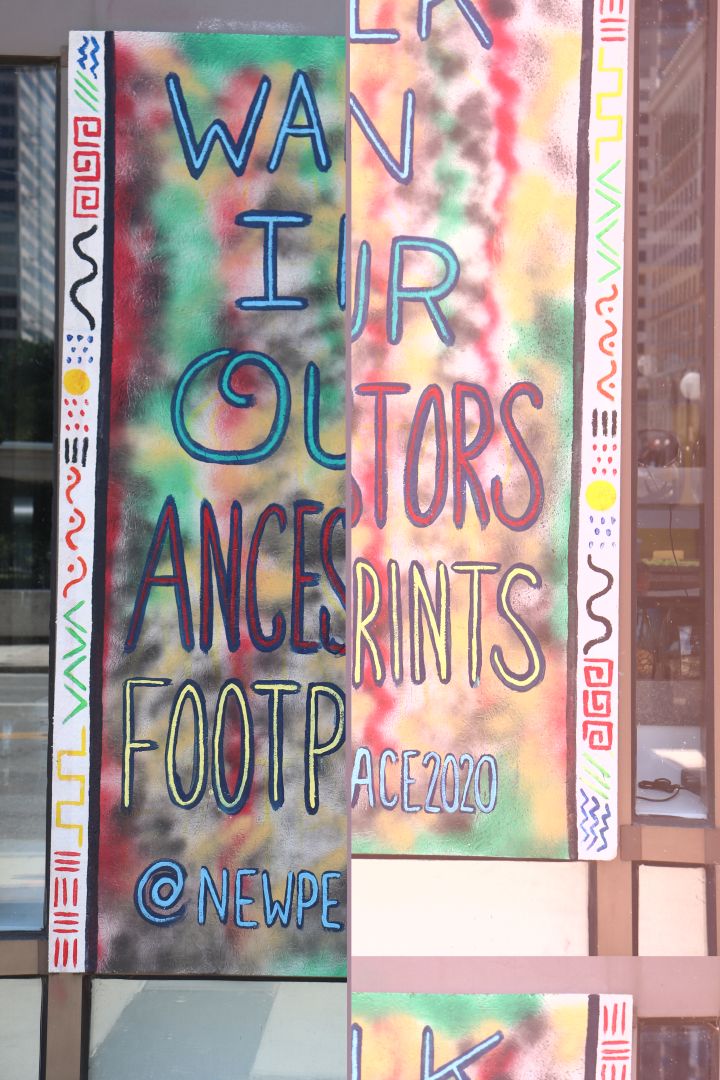 WA
I
OU
ANCES
FOOTP
@NEWPE
LK
N
UR
TORS
RINTS
ACE2020
LK